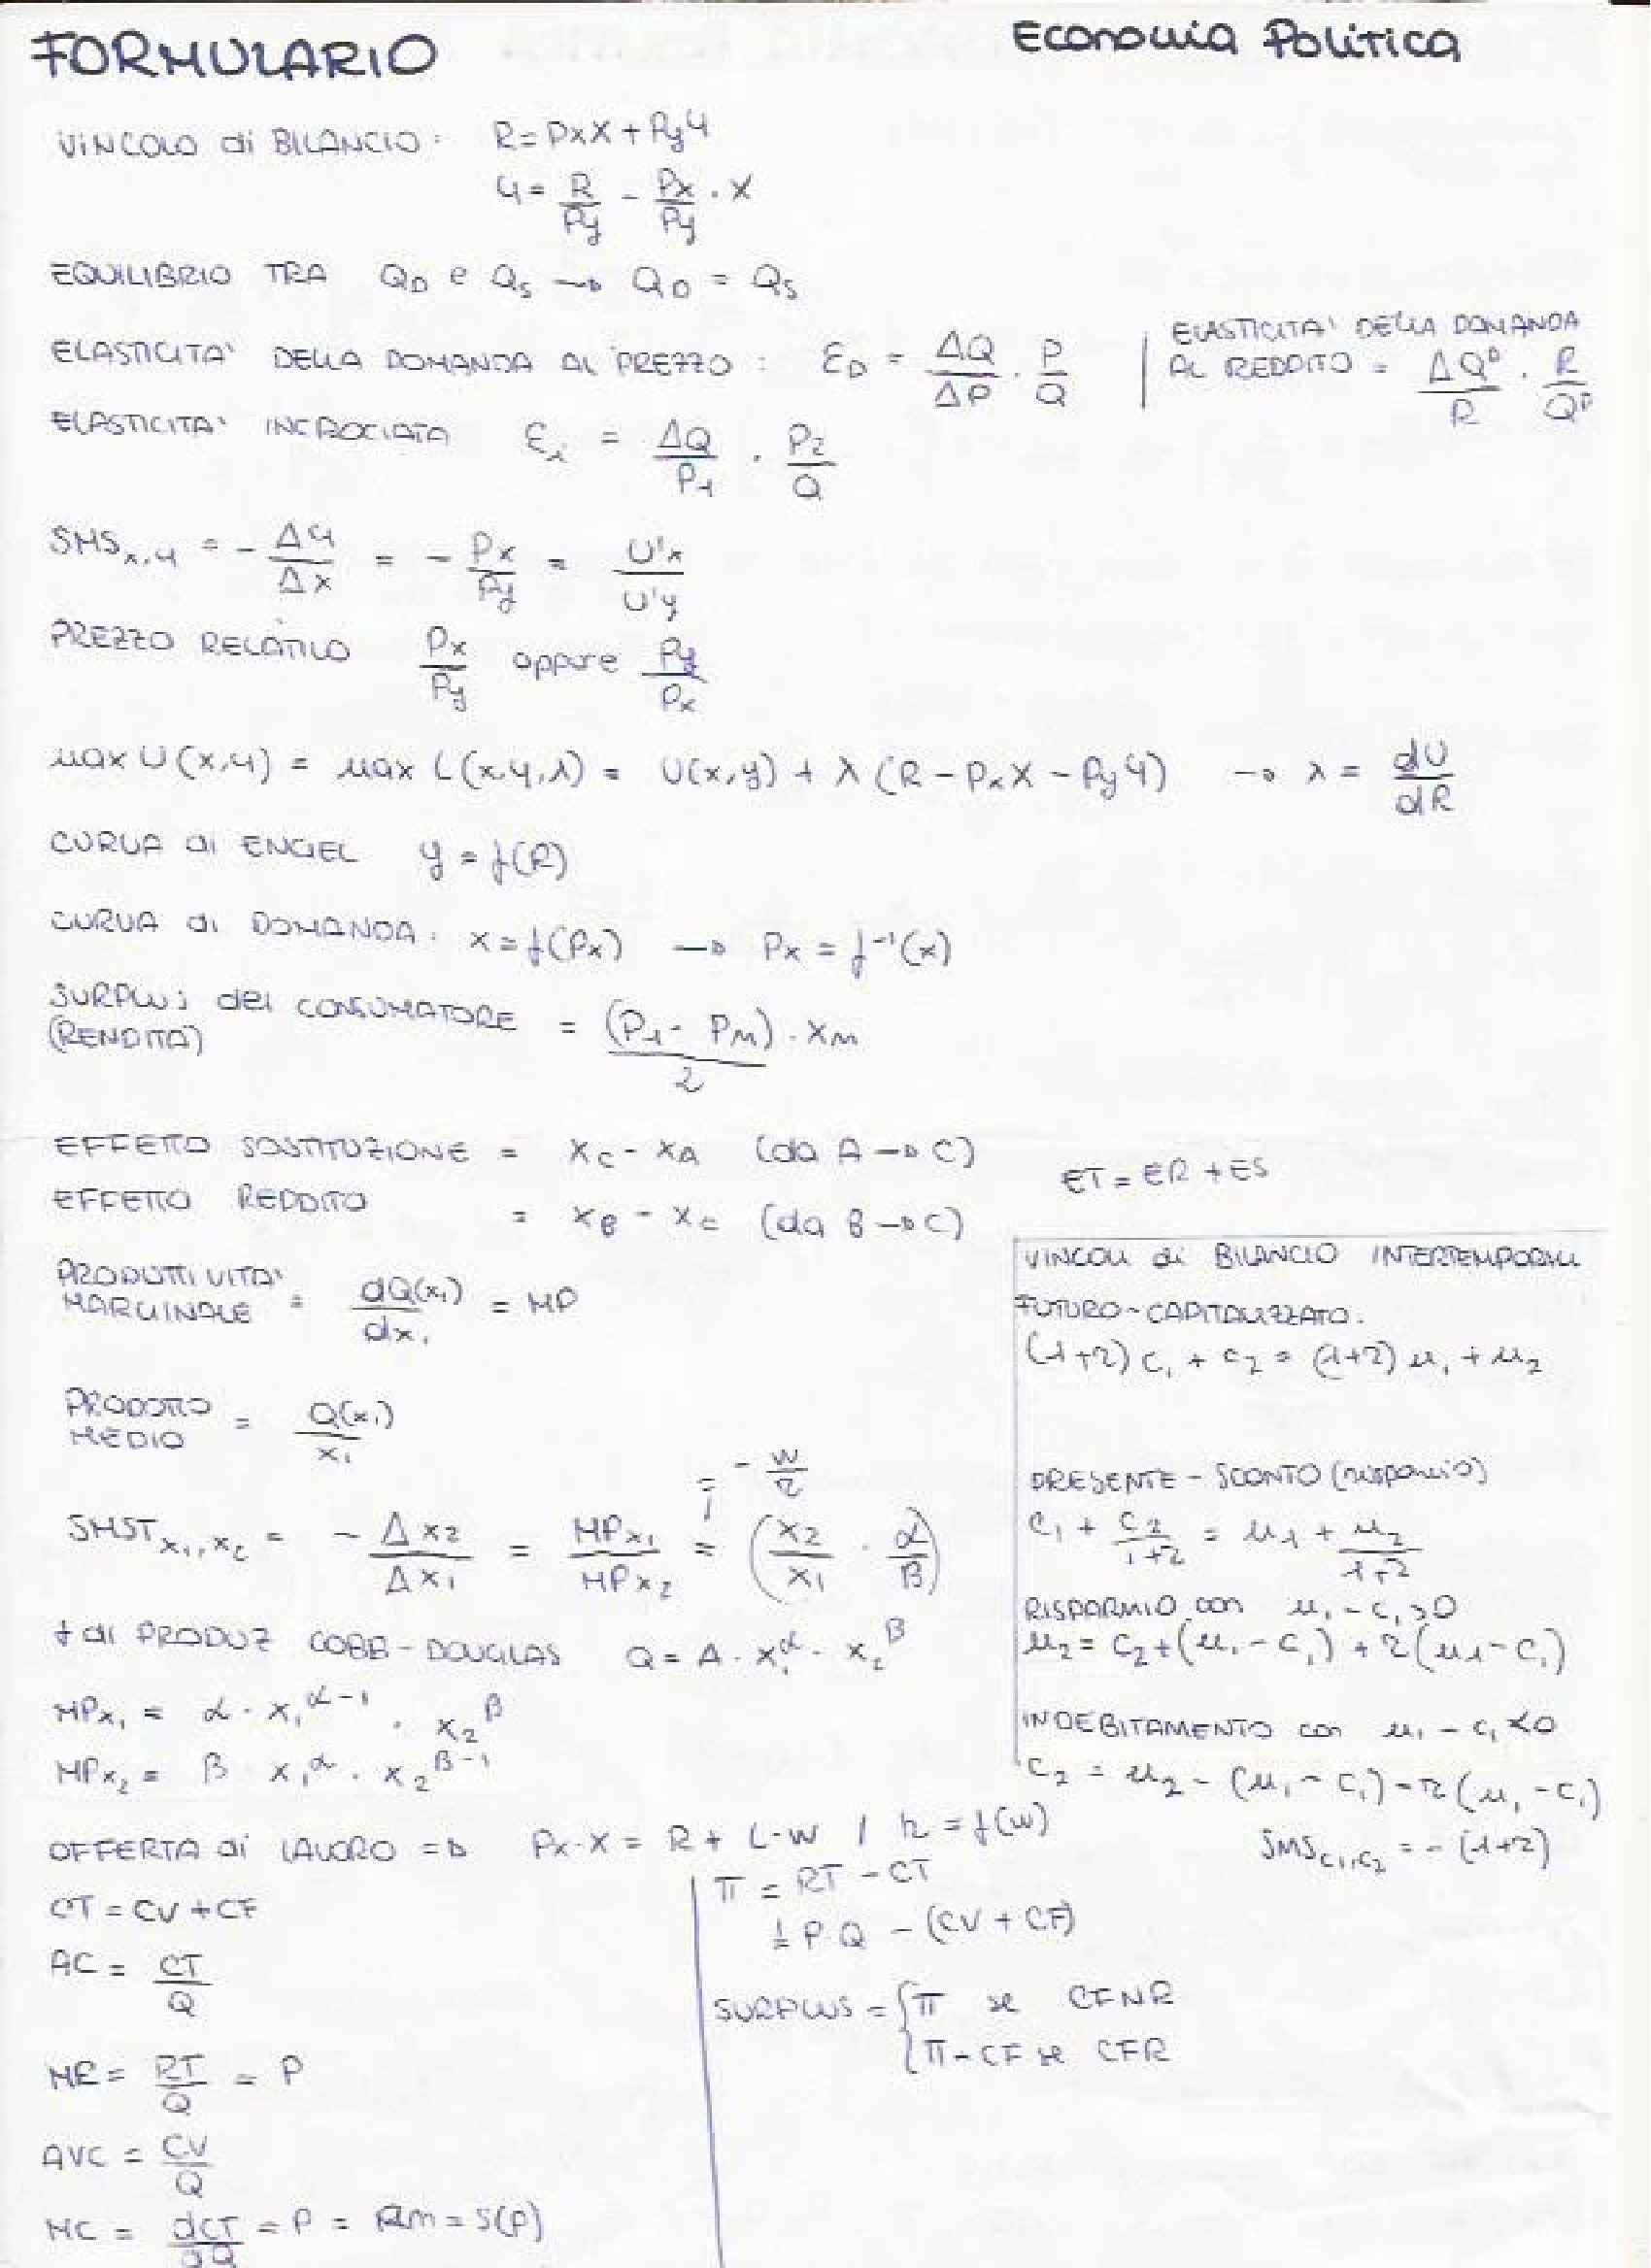 FORMULARIO
Economia Politica
VINCOLO di BILANCIO: R = PxX + PyY
Y = R/Py - Px/Py · X
EQUILIBRIO TRA QD e QS → QD = QS
ELASTICITA' DELLA DOMANDA AL PREZZO: ED = ΔQ/ΔP · P/Q
ELASTICITA' DELLA DOMANDA
AL REDDITO = ΔQᴰ/R · R/Qᴰ
ELASTICITA' INCROCIATA Ei = ΔQ/P1 · P2/Q
SMSx,y = - ΔY/Δx = - Px/Py = U'x/U'y
PREZZO RELATIVO Px/Py oppure Py/Px
max U(x,y) = max L(x,y,λ) = U(x,y) + λ(R - PxX - PyY) → λ = dU/dR
CURVA di ENGEL y = f(R)
CURVA di DOMANDA: x = f(Px) → Px = f⁻¹(x)
SURPLUS del CONSUMATORE = (P1 - PM) · XM / 2
(RENDITA)
EFFETTO SOSTITUZIONE = XC - XA (da A → C)
EFFETTO REDDITO = XB - XC (da B → C)
ET = ER + ES
PRODUTTIVITA' MARGINALE = dQ(x1)/dx1 = MP
PRODOTTO MEDIO = Q(x1)/x1
SMSTx1,x2 = - Δx2/Δx1 = MPx1/MPx2 = (x2/x1 · α/β)
= - w/r
f di PRODUZ COBB-DOUGLAS Q = A · x1^α · x2^β
MPx1 = α · x1^α-1 · x2^β
MPx2 = β x1^α · x2^β-1
VINCOLI di BILANCIO INTERTEMPORALI
FUTURO - CAPITALIZZATO.
(1+r) c1 + c2 = (1+r) m1 + m2
PRESENTE - SCONTO (risparmio)
c1 + c2/1+r = m1 + m2/1+r
RISPARMIO con m1 - c1 > 0
m2 = c2 + (m1 - c1) + r(m1 - c1)
INDEBITAMENTO con m1 - c1 < 0
c2 = m2 - (m1 - c1) - r(m1 - c1)
SMSc1,c2 = - (1+r)
OFFERTA di LAVORO => Px·X = R + L·W / h = f(w)
CT = CV + CF
AC = CT/Q
ME = RT/Q = P
AVC = CV/Q
MC = dCT/dQ = P = Rm = S(P)
π = RT - CT
= P Q - (CV + CF)
SURPLUS = { π se CFNR
π - CF se CFR